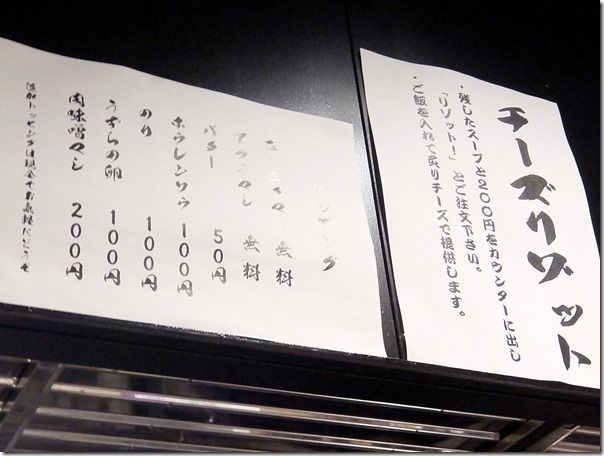 チーズリゾット
・残したスープと200円をカウンターに出し
「リゾット！」とご注文下さい。
・ご飯を入れて炙りチーズで提供します。
トッピング
無料
アブラマシ 無料
バター 50円
ホウレンソウ 100円
のり 100円
うずらの卵 100円
肉味噌マシ 200円
追加トッピングは現金でお気軽にどうぞ